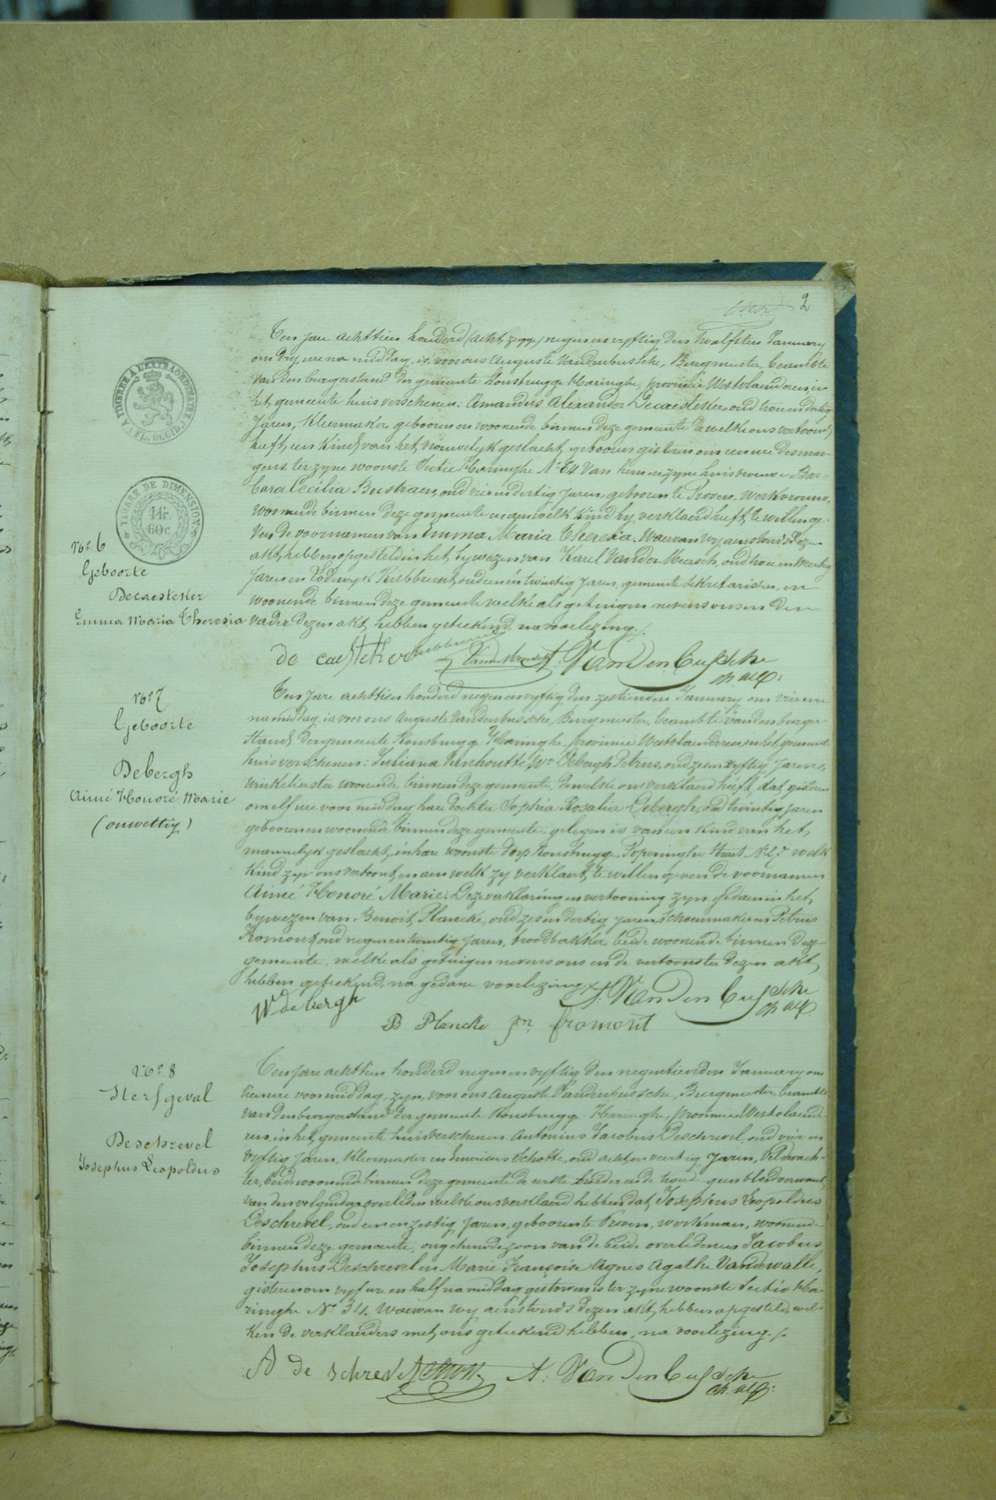 2
Ten jare achttien honderd negen en vyftig den twalfsten January
om dry ure na middag, is voor ons Auguste Vandenbussche, Burgmeester, beambte
van den burgerstand der gemeente Rousbrugge Haringhe, provincie Westvlaanderen, in
het gemeente huis verschenen: Amandus Alexander Decaesteker oud drie en dertig
Jaren, kleermaker geboren en woonende binnen deze gemeente dewelke ons vertoont
heeft, een kind van het vrouwelyk geslacht, geboren gistren om een ure des mor-
gens ter zyne woonste Sectie Haringhe No 84 van hem en zyne huisvrouwe Bar-
bara Cecilia Bustraen, oud vier en dertig Jaren, geboren te Proven, werkvrouw,
woonende binnen deze gemeente en aan welk kind hy verklaerd heeft te willen ge-
ven de voornamen van Emma Maria Theresia. Waervan wy aenstonds dezen
akt hebben opgesteld in het bywezen van Karel Van der Meersch, oud twintig
Jaren en Lodewyk Kebbereut, oud een en twintig Jaren, gemeente sekretarissen, en
woonende binnen deze gemeente welke als getuigen nevens ons en den
vader dezen akt hebben geteekend, na voorlezing.
TIMBRE À L'EXTRAORDINAIRE
TIMBRE DE DIMENSION
60c
No 6
Geboorte
Decaesteker
Emma Maria Theresia
de caesteker
A. VandenBussche
No 7
Geboorte
Debergh
Aimé Honoré Marie
(onwettig)
Ten jare achttien honderd negen en vyftig den zestienden January om vier ure
na middag, is voor ons Auguste Vandenbussche, Burgmeester, beambte van den burger-
stand der gemeente Rousbrugge Haringhe, provincie Westvlaanderen in het gemeente
huis verschenen: Juliana Vanhoutte We Debergh Petrus, oud zes en vyftig Jaren,
winkelierster woonende binnen deze gemeente, dewelke ons verklaerd heeft, dat gistren
om elf ure voor middag hare dochter Sophia Rosalie Debergh, oud twintig Jaren
geboren en woonende binnen deze gemeente, gelegen is van een kind van het
mannelyk geslacht, in hare woonste dorp Rousbrugge, Poperinghe straet No 27 welk
kind zy ons vertoont, en aen welk zy verklaert te willen geven de voornamen
Aimé Honoré Marie. Deze verklaring en vertooning zyn gedaen in het
bywezen van Benoit Plancke, oud zes en dertig Jaren schoenmaker en Petrus
Fromont, oud negen en twintig Jaren, broodbakker beide woonende binnen deze
gemeente, welke als getuigen nevens ons en de vertoonster dezen akt
hebben geteekend, na gedane voorlezing.
We debergh
A. VandenBussche
B Plancke
fromont
No 8
Sterfgeval
Deschrevel
Josephus Leopoldus
Ten jare achttien honderd negen en vyftig den negentienden January om
tien ure voormiddag, zyn, voor ons Auguste Vandenbussche, Burgmeester, beambte
van den burgerstand der gemeente Rousbrugge Haringhe, provincie Westvlaande-
ren, in het gemeente huis verschenen Antonius Jacobus Deschrevel, oud vier en
vyftig Jaren, kleermaker en Schotte, oud acht en veertig Jaren, veldwach-
ter, beide woonende binnen deze gemeente de eerste broeder en de tweede geen bloedverwant
van den volgenden overleden, welke ons verklaerd hebben dat Josephus Leopoldus
Deschrevel, oud een en zestig Jaren, geboren te Proven, werkman, woonende
binnen deze gemeente, ongehuwde zoon van de beide overledenen Jacobus
Josephus Deschrevel en Marie Françoise Agnes Agathe Vandewalle,
gisteren om vyf ure en half na middag gestorven is ter zyne woonste Sectie Ha-
ringhe No 34. Waervan wy aenstonds dezen akt hebben opgesteld wel-
ken de verklaerders met ons geteekend hebben, na voorlezing.
A de schrevel
Schotte
A. VandenBussche